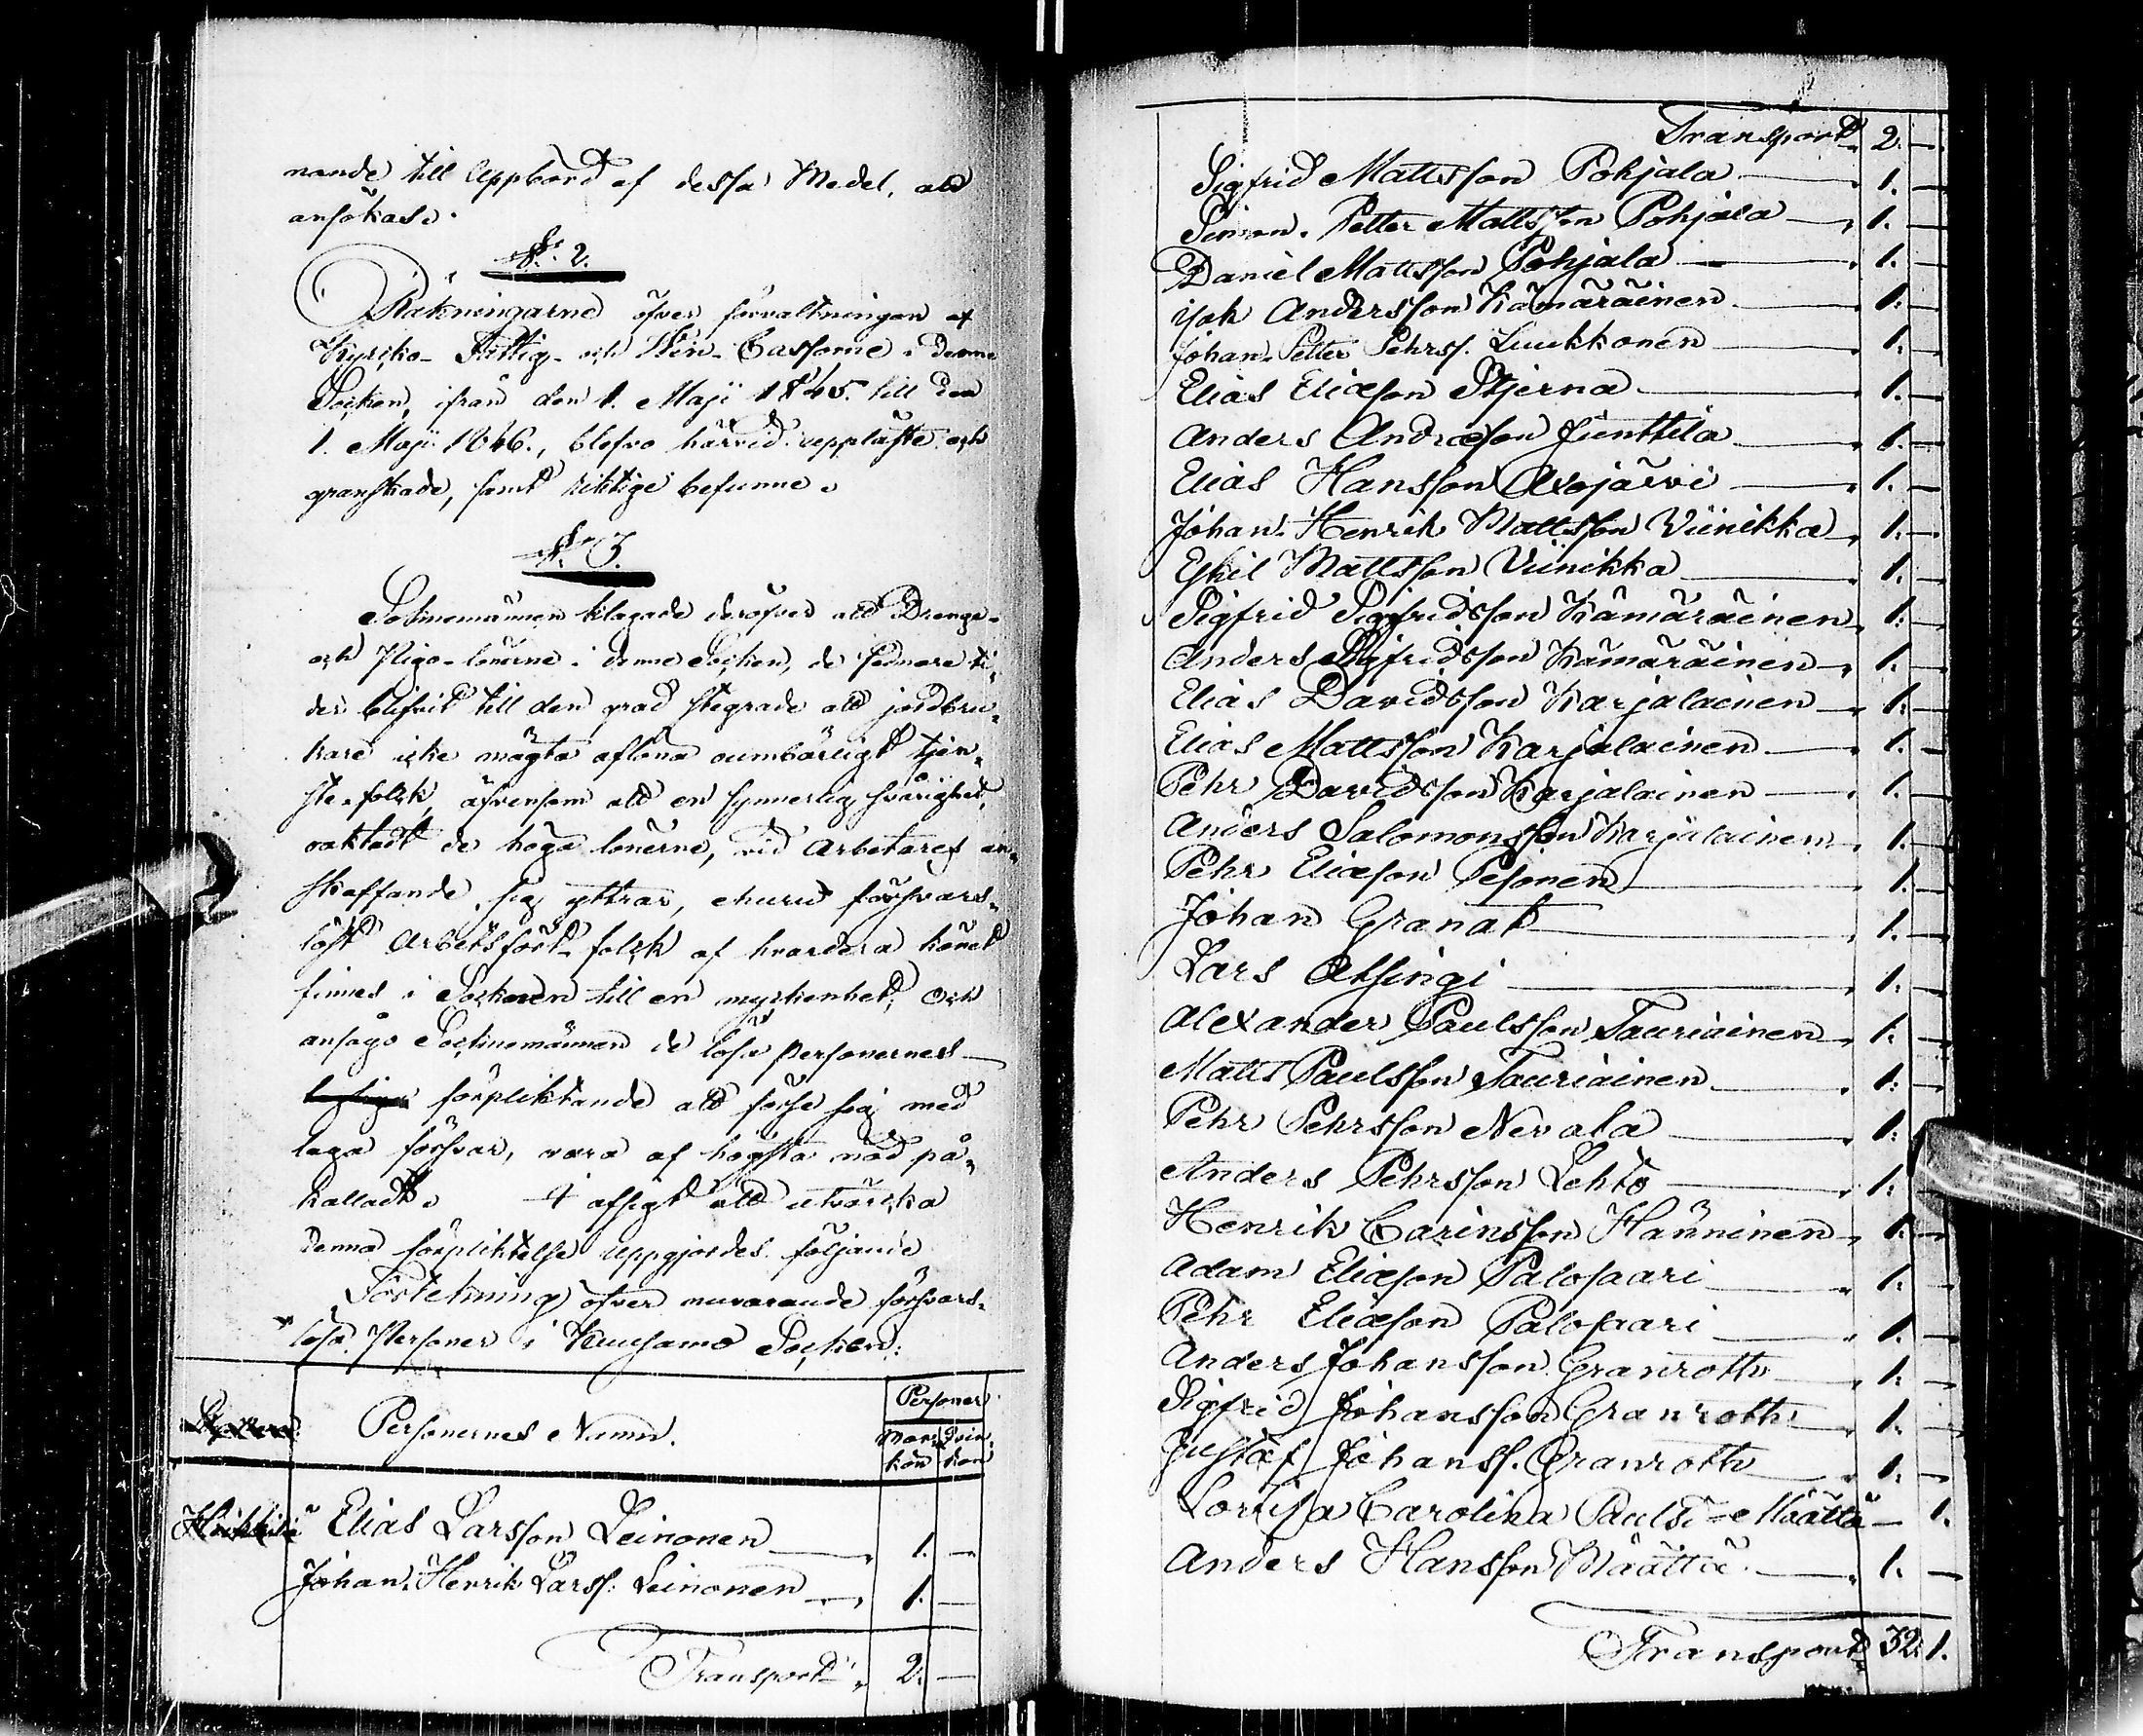 nande till Uppbörd af dessa Medel, att
ansökas.
§. 2.
Räkningarne öfver förvaltningen af
Kyrko- Fattig- och Win- Cassorne i denne
Socken, ifrån den 1. Maji 1845. till den
1. Maji 1846., blefvo härvid uppläste och
granskade, samt riktige befunne.
§. 3.
Socknemännen klagade deröfver att Drenge-
och Pigo-lönerne i denne Socken, de sednare ti-
der blifvit till den grad stegrade att jordbru-
kare icke mägta aflöna oumbärligt tjen-
ste-folck, äfvensom att en synnerlig svårighet,
oaktadt de höga lönerne, vid Arbetares an-
skaffande, sig yttrar, ehuru försvars-
löst Arbetsfört folck af hvardera könet
finnes i Socknen till en myckenhet; Och
ansågo Socknemännen de lösa personernes
förpliktande att förse sig med
laga försvar, vara af högsta nöd på-
kalladt. I afsigt att utvärcka
denna förpliktelse uppgjordes följande
Förteckning öfver nuvarande försvars-
lösa Personer i Kuusamo Socken:
Personernes Namn. Personer
Man- Qvin-
kön kön
Elias Larsson Leinonen 1. —
Johan Henrik Larss. Leinonen 1. —
Transport 2. —
Transport 2. —
Sigfrid Mattsson Pohjala 1. —
Simon Petter Mattsson Pohjala 1. —
Daniel Mattsson Pohjala 1. —
Isak Andersson Kämäräinen 1. —
Johan Petter Pehrss. Luukkonen 1. —
Elias Eliæson Stjerna 1. —
Anders Andræson Junttila 1. —
Elias Hansson Axojärvi 1. —
Johan Henrik Mattsson Viinikka 1. —
Eskil Mattsson Viinikka 1. —
Sigfrid Sigfridsson Kämäräinen 1. —
Anders Sigfridsson Kämäräinen 1. —
Elias Davidsson Karjalainen 1. —
Elias Mattsson Karjalainen 1. —
Pehr Davidsson Karjalainen 1. —
Anders Salomonsson Karjalainen 1. —
Pehr Eliæson Pesonen 1. —
Johan Granat 1. —
Lars Atsingi 1. —
Alexander Paulsson Tauriainen 1. —
Matts Paulsson Tauriainen 1. —
Pehr Pehrsson Nevala 1. —
Anders Pehrsson Lehto 1. —
Henrik Carinsson Hänninen 1. —
Adam Eliæson Palosaari 1. —
Pehr Eliæson Palosaari 1. —
Anders Johansson Granroth 1. —
Sigfrid Johansson Granroth 1. —
Gustaf Johanss. Granroth 1. —
Lovisa Carolina Paulsd. Määttä — 1.
Anders Hansson Määttä 1. —
Transport 32. 1.